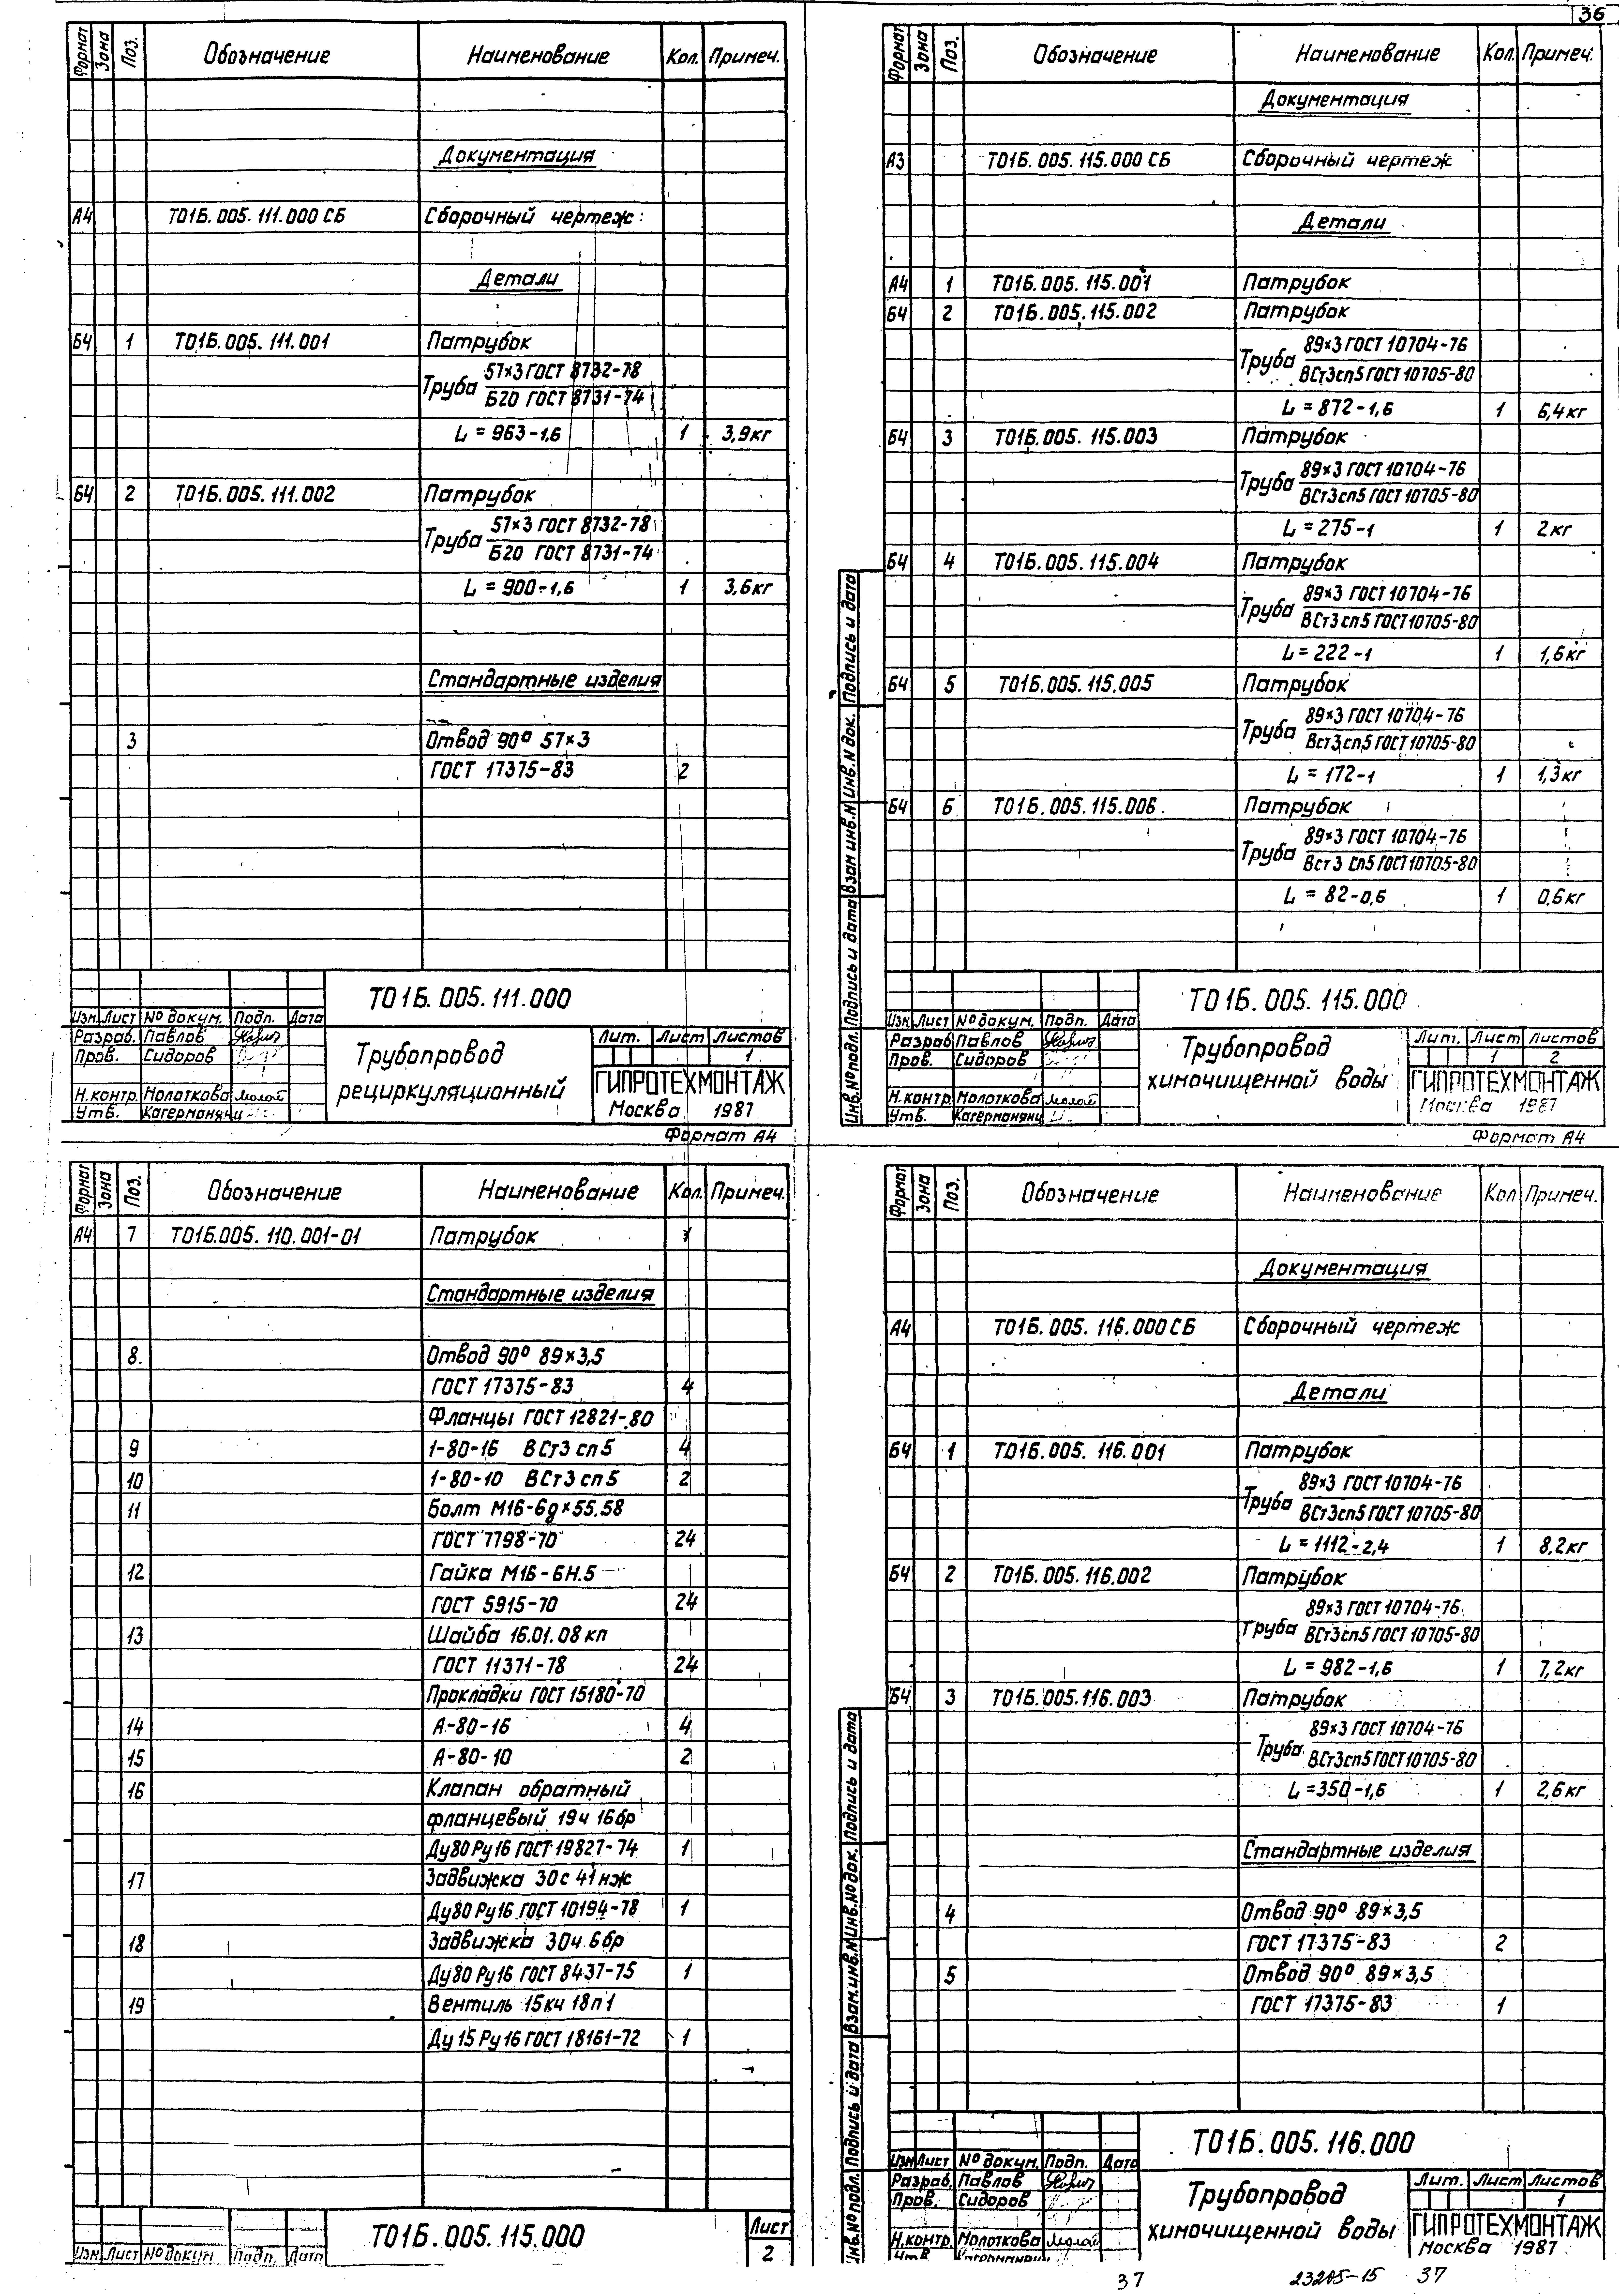 36
Формат Зона Поз. Обозначение Наименование Кол. Примеч.
Документация
А4 Т01Б.005.111.000 СБ Сборочный чертеж
Детали
Б4 1 Т01Б.005.111.001 Патрубок
Труба 57×3 ГОСТ 8732-78
Б20 ГОСТ 8731-74
L = 963-1,6 1 3,9кг
Б4 2 Т01Б.005.111.002 Патрубок
Труба 57×3 ГОСТ 8732-78
Б20 ГОСТ 8731-74
L = 900-1,6 1 3,6кг
Стандартные изделия
3 Отвод 90° 57×3
ГОСТ 17375-83 2
Т01Б.005.111.000
Изм. Лист № докум. Подп. Дата
Разраб. Павлов
Пров. Сидоров
Н.контр. Молоткова
Утв.
Трубопровод
рециркуляционный
Лит. Лист Листов
1
ГИПРОТЕХМОНТАЖ
Москва 1987
Формат А4
Формат Зона Поз. Обозначение Наименование Кол. Примеч.
Документация
А3 Т01Б.005.115.000 СБ Сборочный чертеж
Детали
А4 1 Т01Б.005.115.001 Патрубок
Б4 2 Т01Б.005.115.002 Патрубок
Труба 89×3 ГОСТ 10704-76
ВСт3сп5 ГОСТ 10705-80
L = 872-1,6 1 6,4кг
Б4 3 Т01Б.005.115.003 Патрубок
Труба 89×3 ГОСТ 10704-76
ВСт3сп5 ГОСТ 10705-80
L = 275-1 1 2кг
Б4 4 Т01Б.005.115.004 Патрубок
Труба 89×3 ГОСТ 10704-76
ВСт3сп5 ГОСТ 10705-80
L = 222-1 1 1,6кг
Б4 5 Т01Б.005.115.005 Патрубок
Труба 89×3 ГОСТ 10704-76
Вст3сп5 ГОСТ 10705-80
L = 172-1 1 1,3кг
Б4 6 Т01Б.005.115.006 Патрубок
Труба 89×3 ГОСТ 10704-76
Вст3 сп5 ГОСТ 10705-80
L = 82-0,6 1 0,6кг
Инв.№ подл. Подпись и дата Взам инв.N Инв.N док. Подпись и дата
Т01Б.005.115.000
Изм. Лист № докум. Подп. Дата
Разраб. Павлов
Пров. Сидоров
Н.контр. Молоткова
Утв.
Трубопровод
химочищенной воды
Лит. Лист Листов
1 2
ГИПРОТЕХМОНТАЖ
Москва 1987
Формат А4
Формат Зона Поз. Обозначение Наименование Кол. Примеч.
А4 7 Т01Б.005.110.001-01 Патрубок 1
Стандартные изделия
8. Отвод 90° 89×3,5
ГОСТ 17375-83 4
Фланцы ГОСТ 12821-80
9 1-80-16 ВСт3 сп5 4
10 1-80-10 ВСт3 сп5 2
11 Болт М16-6g×55.58
ГОСТ 7798-70 24
12 Гайка М16-6Н.5
ГОСТ 5915-70 24
13 Шайба 16.01.08 кп
ГОСТ 11371-78 24
Прокладки ГОСТ 15180-70
14 А-80-16 4
15 А-80-10 2
16 Клапан обратный
фланцевый 19ч 16бр
Ду80 Ру16 ГОСТ 19827-74 1
17 Задвижка 30с 41нж
Ду80 Ру16 ГОСТ 10194-78 1
18 Задвижка 30ч 6бр
Ду80 Ру16 ГОСТ 8437-75 1
19 Вентиль 15кч 18п1
Ду 15 Ру16 ГОСТ 18161-72 1
Изм. Лист № докум. Подп. Дата
Т01Б.005.115.000
Лист
2
Формат Зона Поз. Обозначение Наименование Кол Примеч.
Документация
А4 Т01Б.005.116.000 СБ Сборочный чертеж
Детали
Б4 1 Т01Б.005.116.001 Патрубок
Труба 89×3 ГОСТ 10704-76
ВСт3сп5 ГОСТ 10705-80
L = 1112-2,4 1 8,2кг
Б4 2 Т01Б.005.116.002 Патрубок
Труба 89×3 ГОСТ 10704-76
ВСт3сп5 ГОСТ 10705-80
L = 982-1,6 1 7,2кг
Б4 3 Т01Б.005.116.003 Патрубок
Труба 89×3 ГОСТ 10704-76
ВСт3сп5 ГОСТ 10705-80
L = 350-1,6 1 2,6кг
Стандартные изделия
4 Отвод 90° 89×3,5
ГОСТ 17375-83 2
5 Отвод 90° 89×3,5
ГОСТ 17375-83 1
Инв.№ подл. Подпись и дата Взам.инв.№ Инв.№ док. Подпись и дата
Т01Б.005.116.000
Изм Лист № докум. Подп. Дата
Разраб. Павлов
Пров. Сидоров
Н.контр. Молоткова
Утв
Трубопровод
химочищенной воды
Лит. Лист Листов
1
ГИПРОТЕХМОНТАЖ
Москва 1987
37 37